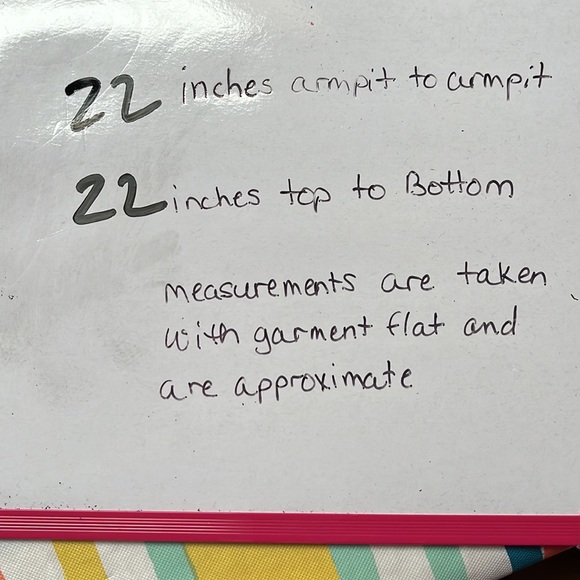 22 inches armpit to armpit
22 inches top to Bottom
measurements are taken
with garment flat and
are approximate